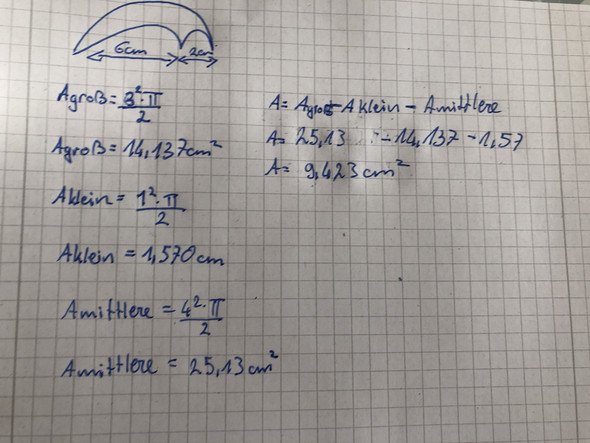 6cm 2cm
Agroß = 3²·π/2
Agroß = 14,137cm²
Aklein = 1²·π/2
Aklein = 1,570cm
Amittlere = 4²·π/2
Amittlere = 25,13cm²
A = Agroß - Aklein - Amittlere
A = 25,13 - 14,137 - 1,57
A = 9,423cm²